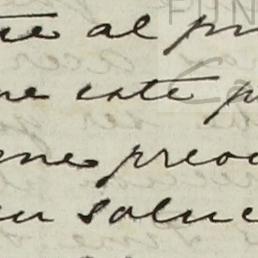 te al pr
ne este p
ene preoc
su soluc